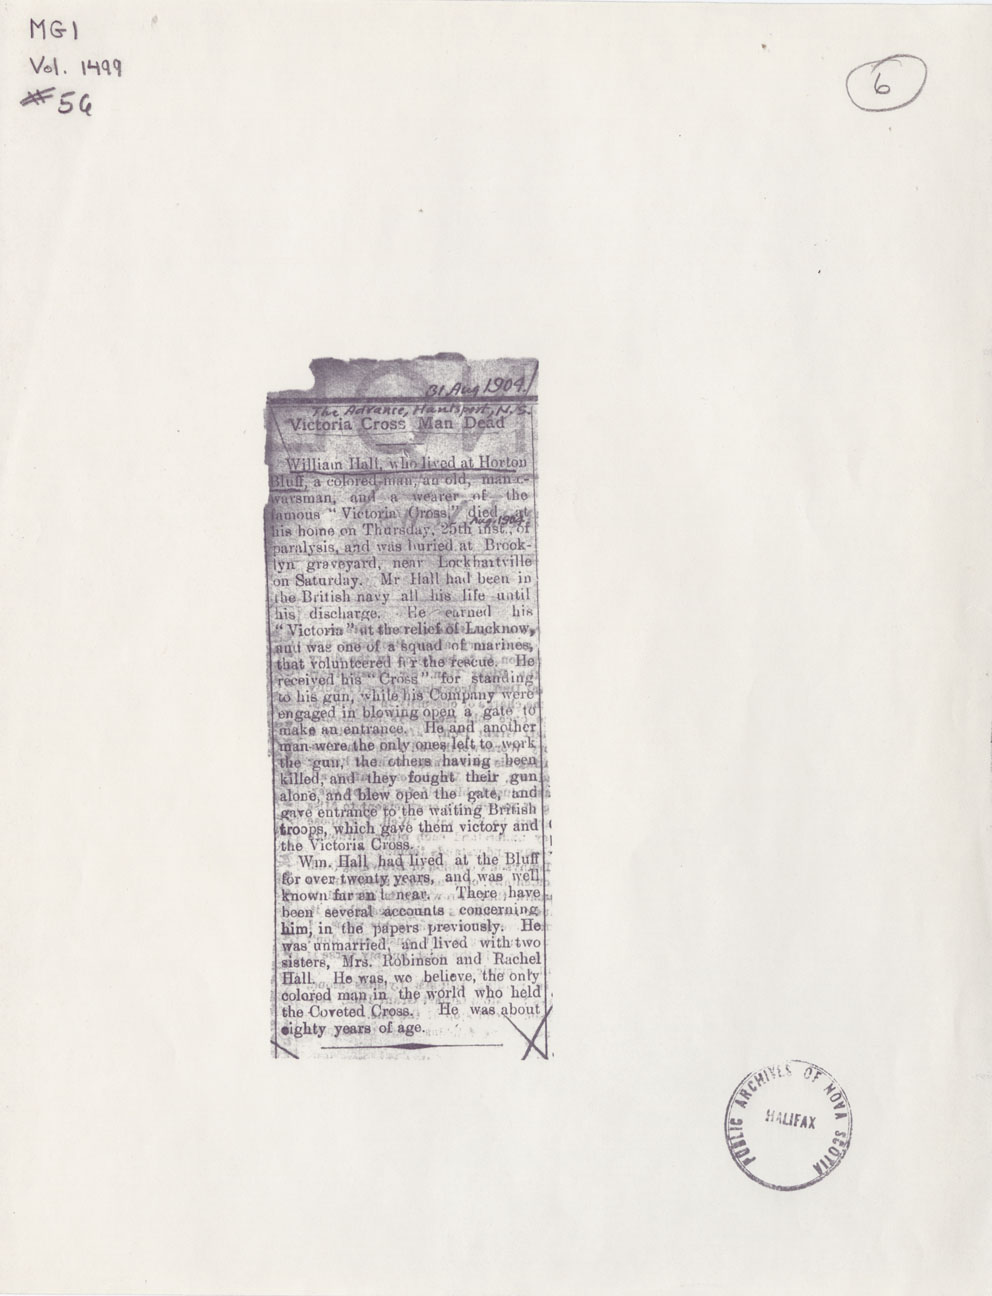 MG1
Vol. 1499
#56
6
31 Aug 1904.
The Advance, Hantsport, N.S.
Victoria Cross Man Dead
William Hall, who lived at Horton
Bluff, a colored man, an old, man-o-
warsman, and a wearer of the
famous "Victoria Cross," died at
Aug. 1904
his home on Thursday, 25th inst., of
paralysis, and was buried at Brook-
lyn graveyard, near Lockhartville
on Saturday. Mr Hall had been in
the British navy all his life until
his discharge. He earned his
"Victoria" at the relief of Lucknow,
and was one of a squad of marines,
that volunteered for the rescue. He
received his "Cross" for standing
to his gun, while his Company were
engaged in blowing open a gate to
make an entrance. He and another
man were the only ones left to work
the gun, the others having been
killed, and they fought their gun
alone, and blew open the gate, and
gave entrance to the waiting British
troops, which gave them victory and
the Victoria Cross.
Wm. Hall had lived at the Bluff
for over twenty years, and was well
known far and near. There have
been several accounts concerning
him, in the papers previously. He
was unmarried, and lived with two
sisters, Mrs. Robinson and Rachel
Hall. He was, we believe, the only
colored man in the world who held
the Coveted Cross. He was about
eighty years of age.
PUBLIC ARCHIVES OF NOVA SCOTIA
HALIFAX